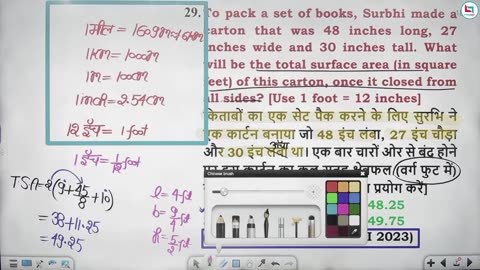 29. To pack a set of books, Surbhi made a
carton that was 48 inches long, 27
inches wide and 30 inches tall. What
will be the total surface area (in square
feet) of this carton, once it closed from
all sides? [Use 1 foot = 12 inches]
किताबों का एक सेट पैक करने के लिए सुरभि ने
एक कार्टन बनाया जो 48 इंच लंबा, 27 इंच चौड़ा
और 30 इंच लंबा था। एक बार चारों ओर से बंद होने
(वर्ग फुट में)
प्रयोग करें]
48.25
49.75
2023)
1 मील = 1609m = 1.6km
1km = 1000m
1m = 100cm
1 inch = 2.54cm
12 इँच = 1 foot
1 इँच = 1/12 foot
TSA = 2(9 + 45/8 + 10)
= 38 + 11.25
= 49.25
l = 4 foot
b = 9/4 foot
h = 5/2 foot
Chinese brush